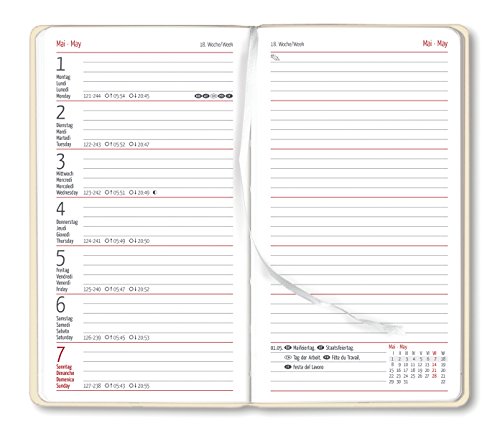 Mai - May
18. Woche/Week
1
Montag
Lundi
Lunedì
Monday
121-244 05:54 20:45
2
Dienstag
Mardi
Martedì
Tuesday
122-243 05:52 20:47
3
Mittwoch
Mercredi
Mercoledì
Wednesday
123-242 05:51 20:49
4
Donnerstag
Jeudi
Giovedì
Thursday
124-241 05:49 20:50
5
Freitag
Vendredi
Venerdì
Friday
125-240 05:47 20:52
6
Samstag
Samedi
Sabato
Saturday
126-239 05:45 20:53
7
Sonntag
Dimanche
Domenica
Sunday
127-238 05:43 20:55
18. Woche/Week
Mai - May
01.05. Maifeiertag. Staatsfeiertag.
Tag der Arbeit. Fête du Travail.
Festa del Lavoro
Mai - May
1 2 3 4 5 6 7
8 9 10 11 12 13 14
15 16 17 18 19 20 21
22 23 24 25 26 27 28
29 30 31